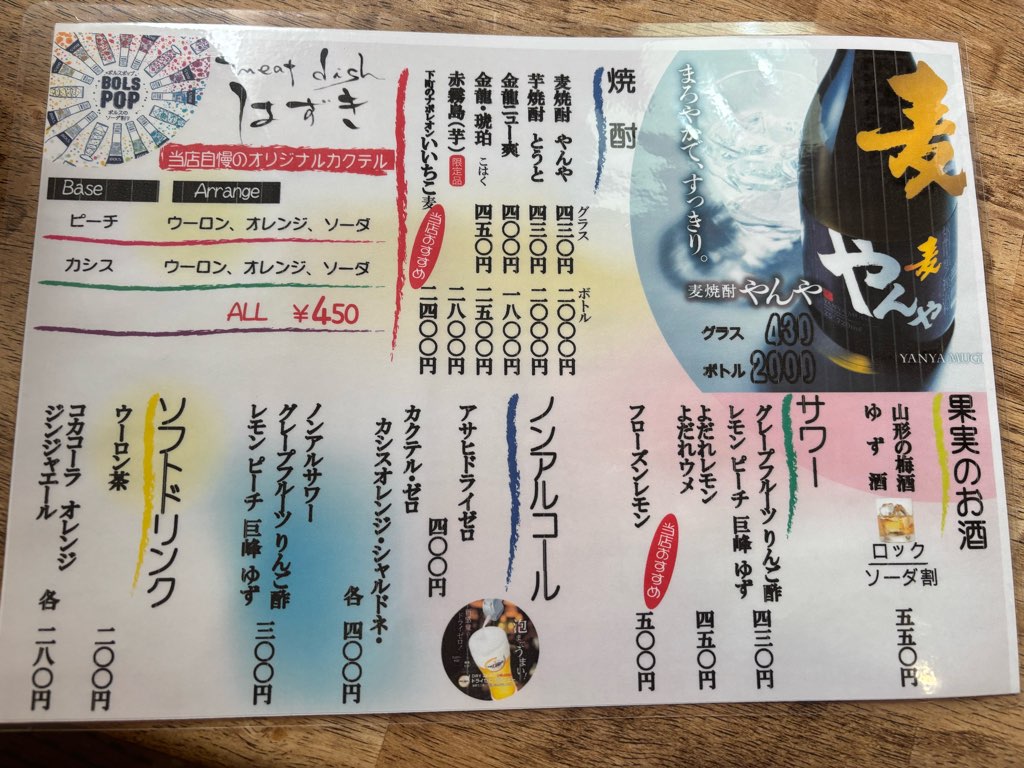 麦
まろやかで、すっきり。
麦焼酎 やんや
グラス 430
ボトル 2000
麦
やんや
YANYA MUGI
焼酎
グラス ボトル
麦焼酎 やんや 四三〇円 二〇〇〇円
芋焼酎 とうと 四三〇円 二〇〇〇円
金龍ニュー爽 四〇〇円 一八〇〇円
金龍・琥珀 こはく 四五〇円 二五〇〇円
赤霧島(芋) 限定品 二八〇〇円
下町のナポレオンいいちこ 麦 当店おすすめ 二四〇〇円
BOLS POP
meat dish
はずき
当店自慢のオリジナルカクテル
Base Arrange
ピーチ ウーロン、オレンジ、ソーダ
カシス ウーロン、オレンジ、ソーダ
ALL ¥450
果実のお酒
山形の梅酒
ゆず酒
ロック
ソーダ割
五五〇円
サワー
グレープフルーツ りんご酢
レモン ピーチ 巨峰 ゆず 四三〇円
よだれレモン
よだれウメ 四五〇円
フローズンレモン 当店おすすめ 五〇〇円
ノンアルコール
アサヒドライゼロ 四〇〇円
カクテル・ゼロ
カシスオレンジ・シャルドネ・ 各 四〇〇円
ノンアルサワー
グレープフルーツ りんご酢
レモン ピーチ 巨峰 ゆず 三〇〇円
泡までうまい!
ソフトドリンク
ウーロン茶 二〇〇円
コカコーラ オレンジ
ジンジャエール 各 二八〇円